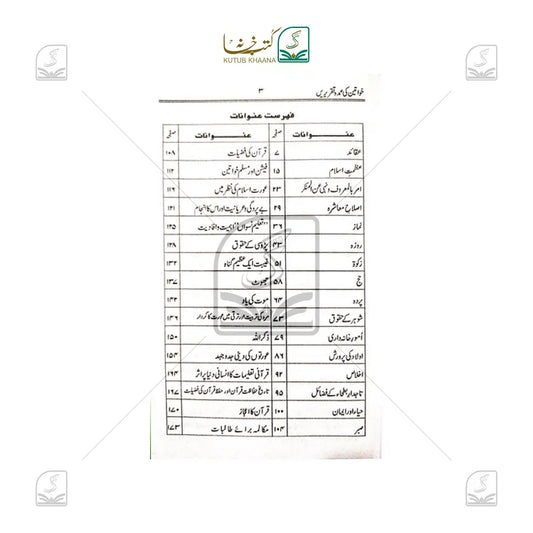 کتب خانہ
KUTUB KHAANA
خواتین کی عمدہ تقریریں ۳
فہرست عنوانات
عنوانات صفحہ عنوانات صفحہ
عقائد ۷ قرآن کی فضیلت ۱۰۸
عظمتِ اسلام ۱۵ فیشن اور مسلم خواتین ۱۱۲
امر بالمعروف ونہی عن المنکر ۲۳ عورت اسلام کی نظر میں ۱۱۶
اصلاحِ معاشرہ ۲۹ بے پردگی وعریانیت اور اس کا انجام ۱۲۱
نماز ۳۶ تعلیم نسواں: اہمیت وافادیت ۱۲۵
روزہ ۴۳ پڑوسی کے حقوق ۱۲۸
زکوۃ ۵۱ غیبت ایک عظیم گناہ ۱۳۲
حج ۵۸ جھوٹ ۱۳۷
پردہ ۶۴ موت کی یاد ۱۴۲
شوہر کے حقوق ۷۳ مرد کی تربیت اور ترقی میں عورت کا کردار ۱۴۶
اُمورِ خانہ داری ۷۹ ذکر اللہ ۱۵۰
اولاد کی پرورش ۸۶ عورتوں کی دینی جدوجہد ۱۵۴
اخلاص ۹۲ قرآنی تعلیمات کا انسانی دنیا پر اثر ۱۶۴
تاجدارِ بطحاء کے فضائل ۹۵ تاریخ حفاظت قرآن اور حفظ قرآن کی فضیلت ۱۶۷
حیاء اور ایمان ۱۰۰ قرآن کا اعجاز ۱۷۰
صبر ۱۰۴ مکالمہ برائے طالبات ۱۷۳